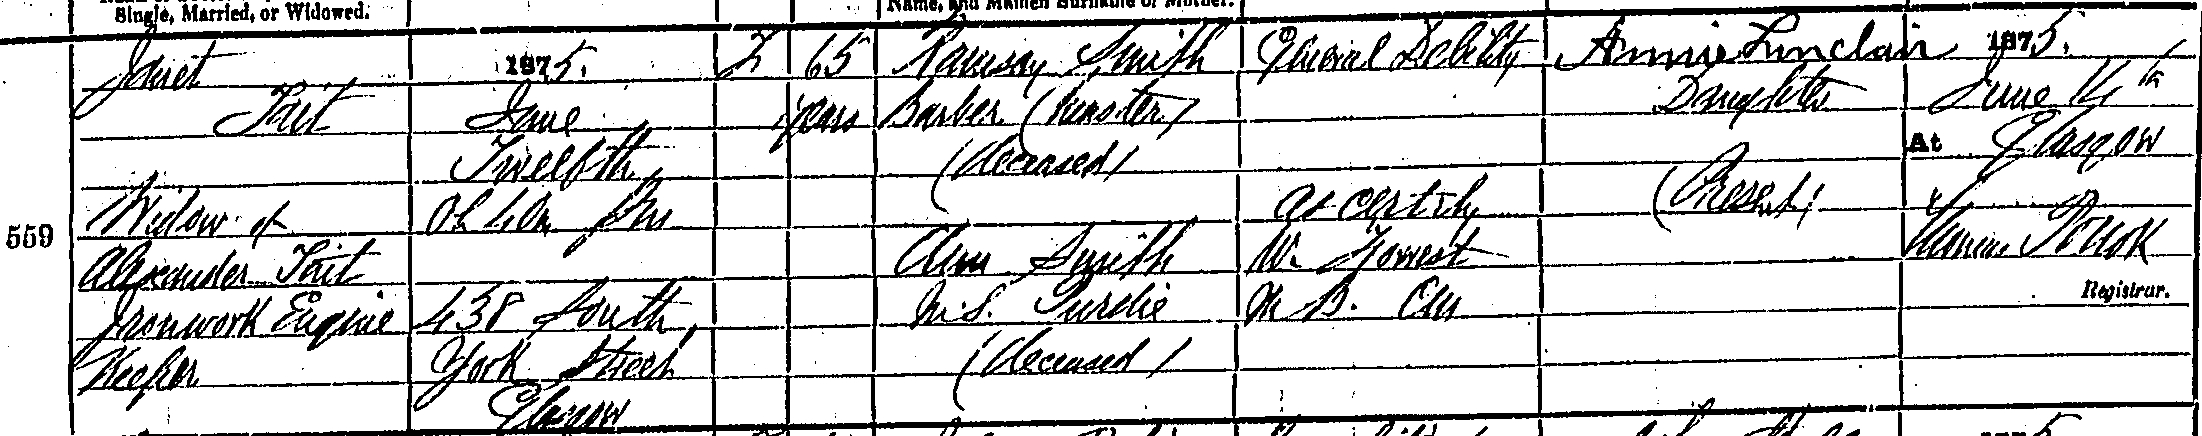 Single, Married, or Widowed.
Name, and Maiden Surname of Mother.
559
Janet
Tait
Widow of
Alexander Tait
Ironwork Engine
Keeper
1875.
June
Twelfth
0h 40m
438 South
York Street
Glasgow
F
65
years
Ramsay Smith
Barber (master)
(deceased)
Ann Smith
M.S. Purdie
(deceased)
General Debility
as cert by
W. Forrest
M B. CM
Annie Sinclair
Daughter
(Present)
1875.
June 14th
At Glasgow
Registrar.